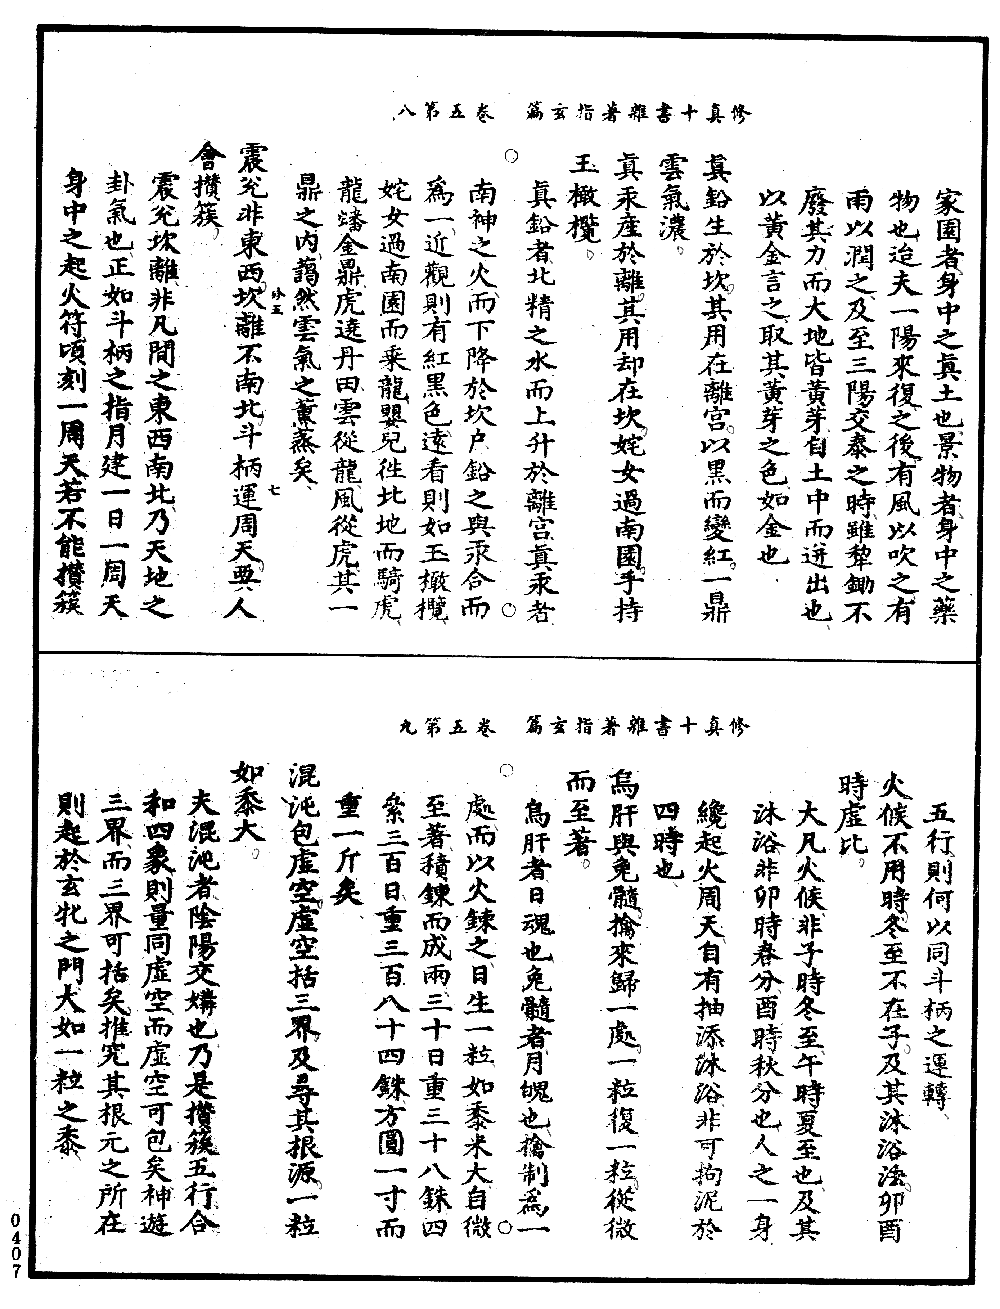 修真十書雜著指玄篇　卷五第八
家園者身中之真土也景物者身中之藥
物也迨夫一陽來復之後有風以吹之有
雨以潤之及至三陽交泰之時雖犂鋤不
廢其力而大地皆黃芽自土中而迸出也
以黃金言之取其黃芽之色如金也
真鉛生於坎其用在離宮以黑而變紅一鼎
雲氣濃。
真汞產於離其用却在坎姹女過南園手持
玉橄欖。
真鉛者北精之水而上升於離宮真汞者
南神之火而下降於坎户鉛之與汞合而
爲一近觀則有紅黑色遠看則如玉橄欖
姹女過南園而乘龍嬰兒徃北地而騎虎
龍蟠金鼎虎遶丹田雲從龍風從虎其一
鼎之內藹然雲氣之薰蒸矣
七
震兊非東西坎離不南北斗柄運周天要人
會攢簇。
震兊坎離非凡間之東西南北乃天地之
卦氣也正如斗柄之指月建一日一周天
身中之起火符頃刻一周天若不能攢簇
修真十書雜著指玄篇　卷五第九
五行則何以同斗柄之運轉
火候不用時冬至不在子及其沐浴法卯酉
時虛比。
大凡火候非子時冬至午時夏至也及其
沐浴非卯時春分酉時秋分也人之一身
纔起火周天自有抽添沐浴非可拘泥於
四時也
烏肝與兔髓擒來歸一處一粒復一粒從微
而至著。
烏肝者日魂也兔髓者月魄也擒制爲一
處而以火鍊之日生一粒如黍米大自微
至著積鍊而成兩三十日重三十八銖四
絫三百日重三百八十四銖方圓一寸而
重一斤矣
混沌包虛空虛空括三界及尋其根源一粒
如黍大。
夫混沌者陰陽交媾也乃是攢簇五行合
和四象則量同虛空而虛空可包矣神遊
三界而三界可括矣推究其根元之所在
則起於玄牝之門大如一粒之黍
0407